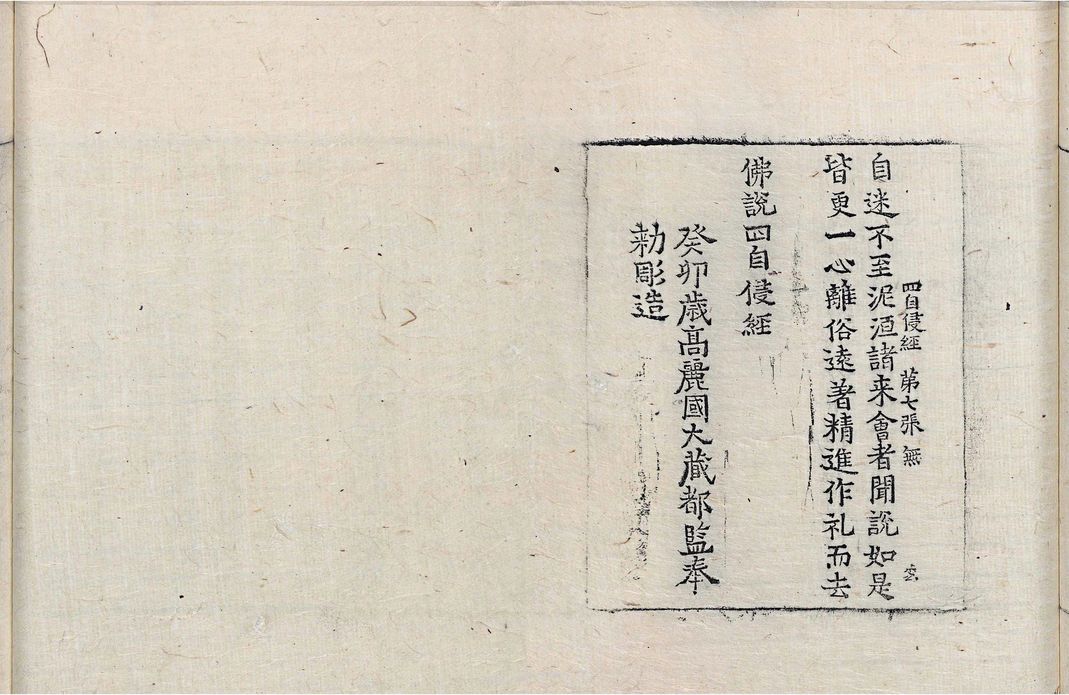 四自侵經 第七張 無
自迷不至泥洹諸来會者聞說如是
皆更一心離俗遠著精進作礼而去
佛說四自侵經
癸卯歳高麗國大藏都監奉
勑彫造